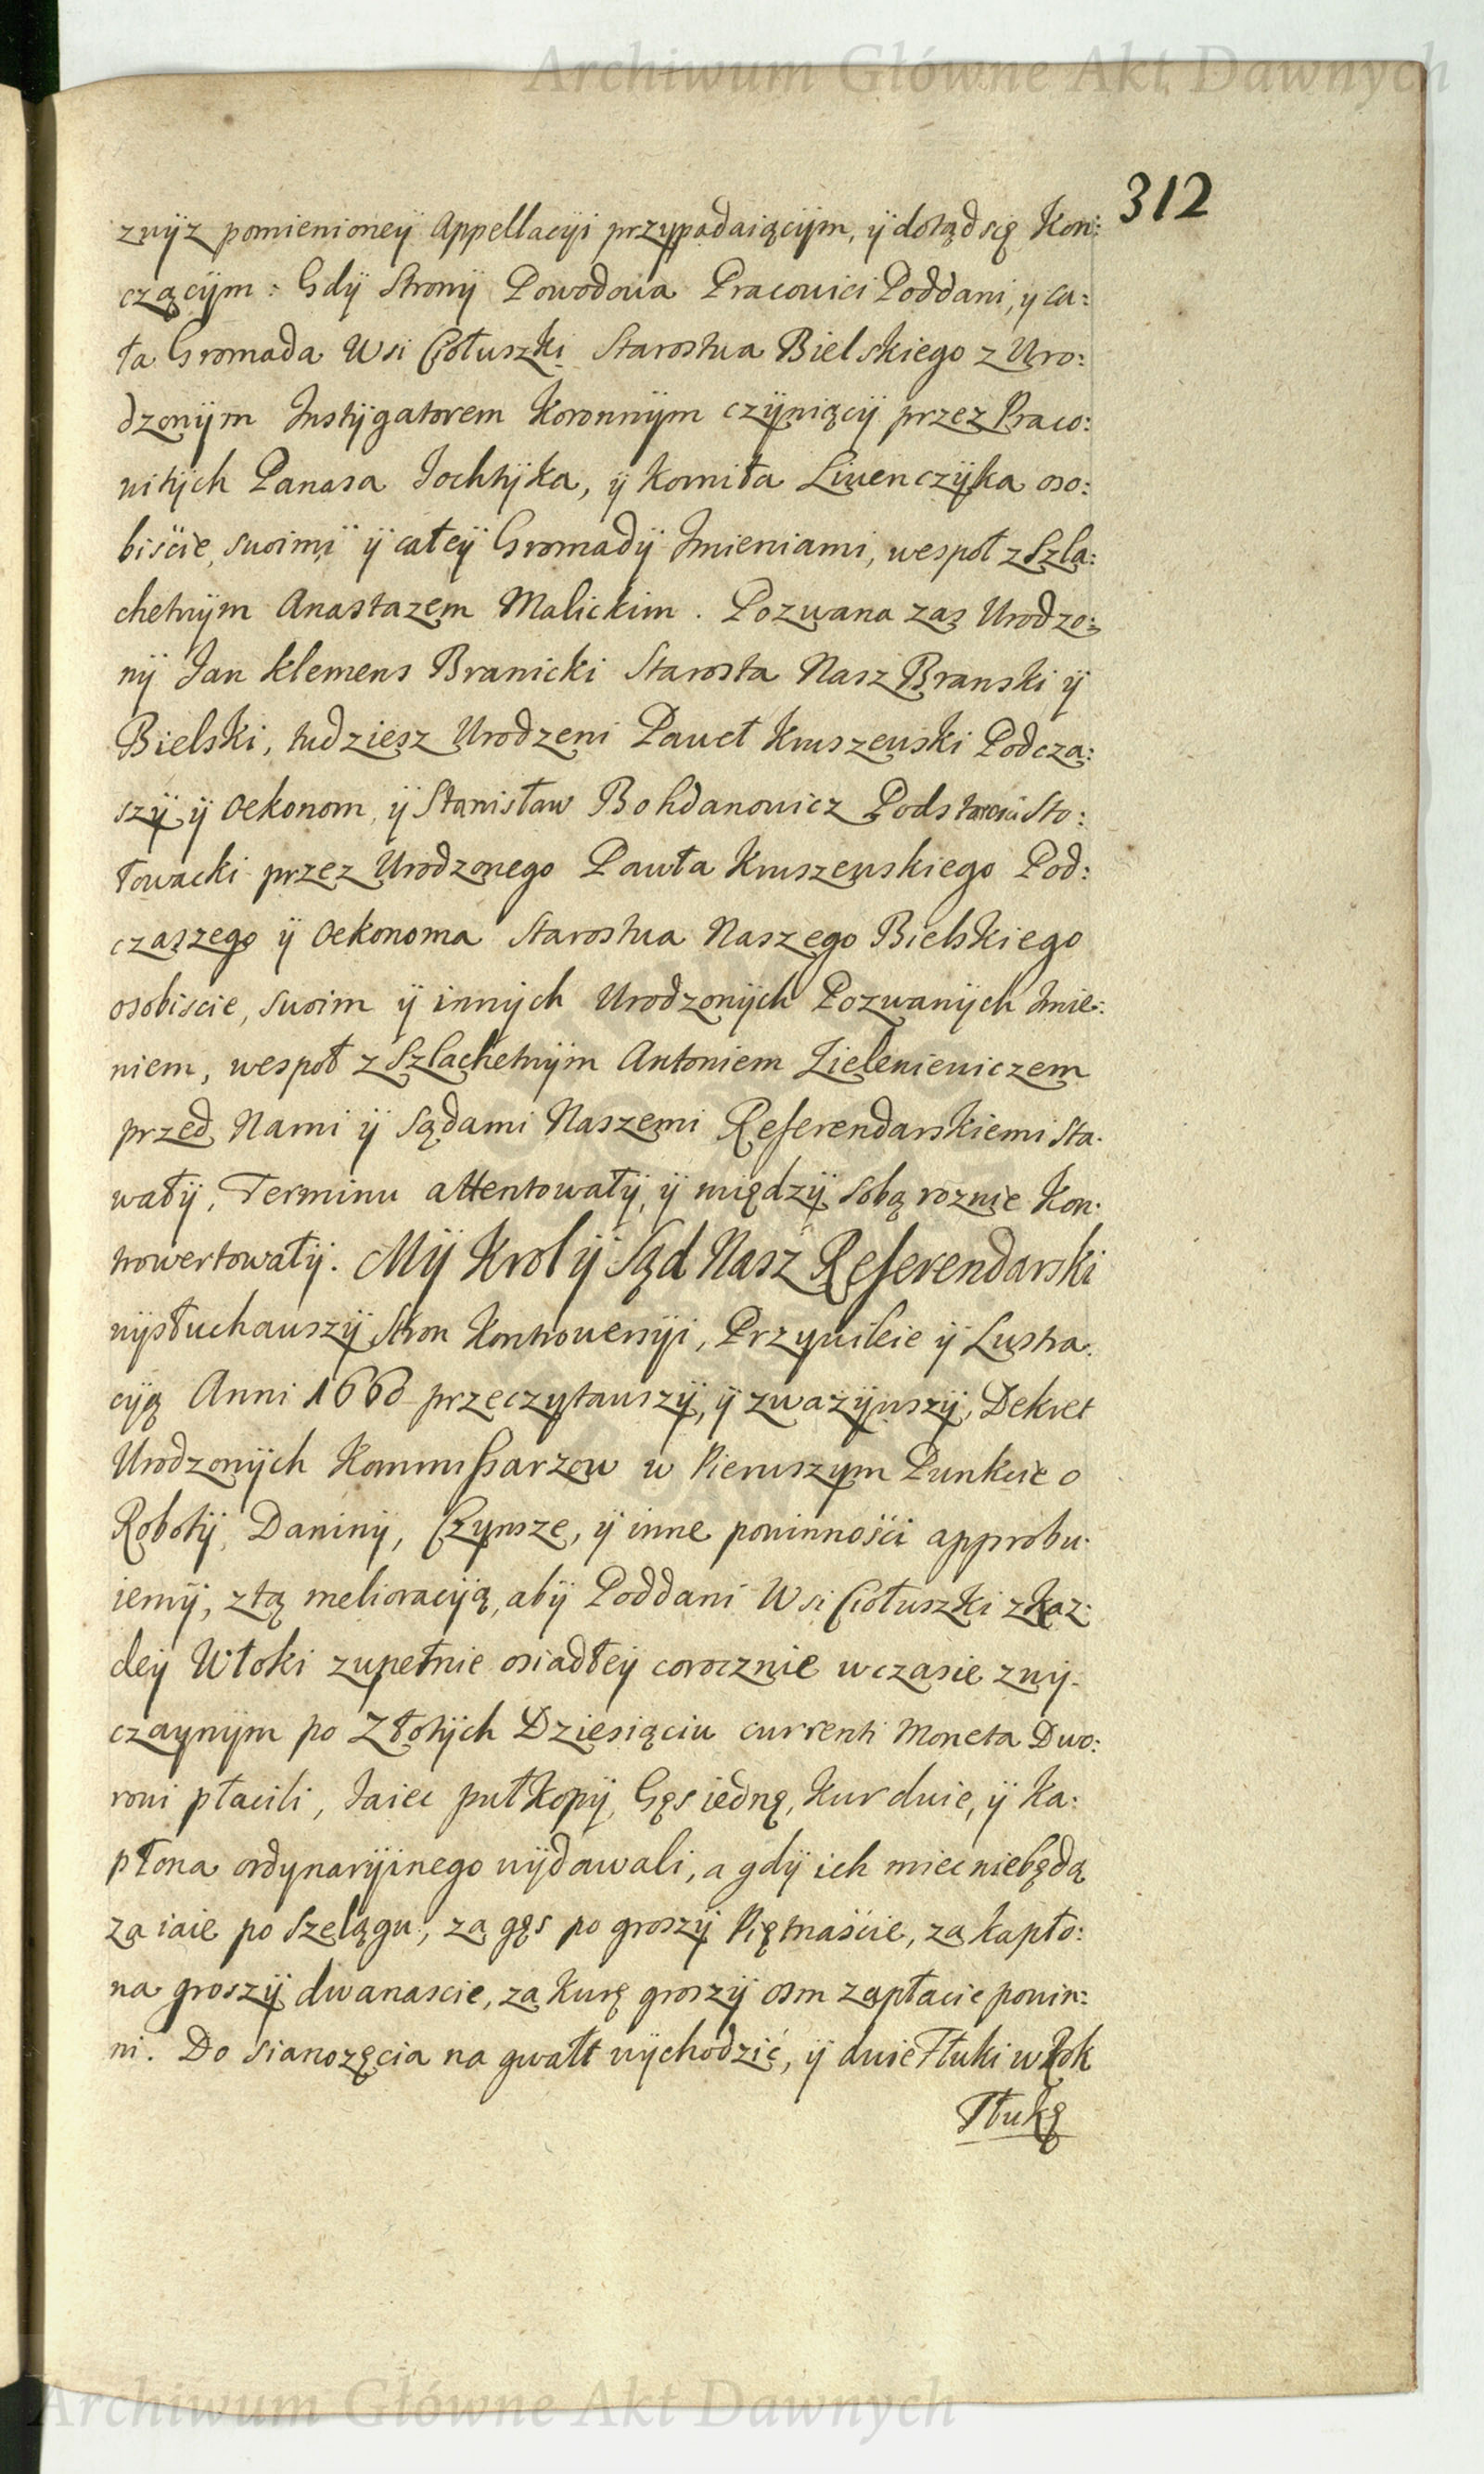 Archiwum Główne Akt Dawnych
312
zwÿz pomienioneÿ Appellacÿi przypadaiącÿm, ÿ dotąd się Kon:
czącÿm: Gdÿ Stronÿ Powodowa Pracowici Poddani, y ca:
ła Gromada Wsi Ciołuszki Starostwa Bielskiego z Uro:
dzonÿm Instÿgatorem Koronnÿm czÿniącÿ przez Praco:
witÿch Panasa Jochtÿka, ÿ Korniła Liwenczÿka oso:
biście, swoimi ÿ całeÿ Gromadÿ Imieniami, wespoł z Szla:
chetnÿm Anastazem Malickim. Pozwana zas Urodzo:
nÿ Jan Klemens Branicki Starosta Nasz Branski ÿ
Bielski, tudziesz Urodzeni Paweł Kruszewski Podcza:
szÿ ÿ Oekonom, ÿ Stanisław Bohdanowicz Podstarosci Sto:
łowacki przez Urodzonego Pawła Kruszewskiego Pod:
czaszego ÿ Oekonoma Starostwa Naszego Bielskiego
osobiscie, swoim ÿ innÿch Urodzonÿch Pozwanÿch Imie:
niem, wespoł z Szlachetnÿm Antoniem Zieleniewiczem
przed Nami ÿ Sądami Naszemi Referendarskiemi sta.
wałÿ, Terminu attentowałÿ, ÿ międzÿ sobą roznie Kon.
trowertowałÿ. Mÿ Krol ÿ Sąd Nasz Referendarski
wÿsłuchawszÿ Stron Kontrowersÿi, Przywileie ÿ Lustra.
cÿą Anni 1660 przeczytawszÿ, ÿ zważÿwszÿ, Dekret
Urodzonÿch Kommissarzow w Pierwszym Punkcie o
Robotÿ, Daninÿ, Czynsze, ÿ inne powinności approbu.
iemÿ, z tą melioracÿą, abÿ Poddani Wsi Ciołuszki z kaz:
deÿ Włoki zupełnie osiadłeÿ corocznie w czasie zwÿ.
czaynÿm po Złotÿch Dziesiąciu currenti Moneta Dwo:
rowi płacili, Jaiec puł kopÿ, Gęs iedną, Kur dwie, ÿ Ka:
płona ordynarÿinego wÿdawali, a gdÿ ich miec niebędą
za iaie po Szelągu, za gęs po groszÿ Piętnaście, za kapło:
na groszÿ dwanascie, za Kurę groszÿ osm zapłacic powin:
ni. Do sianozęcia na gwałt wÿchodzić, ÿ dwie Tłuki w Rok
Tłukę
Archiwum Główne Akt Dawnych